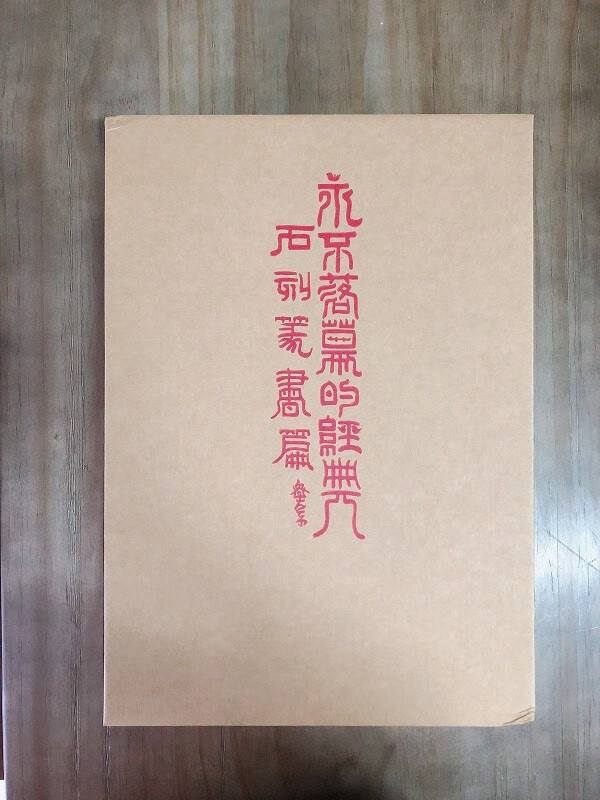 永不落幕的經典
石刻篆書篇